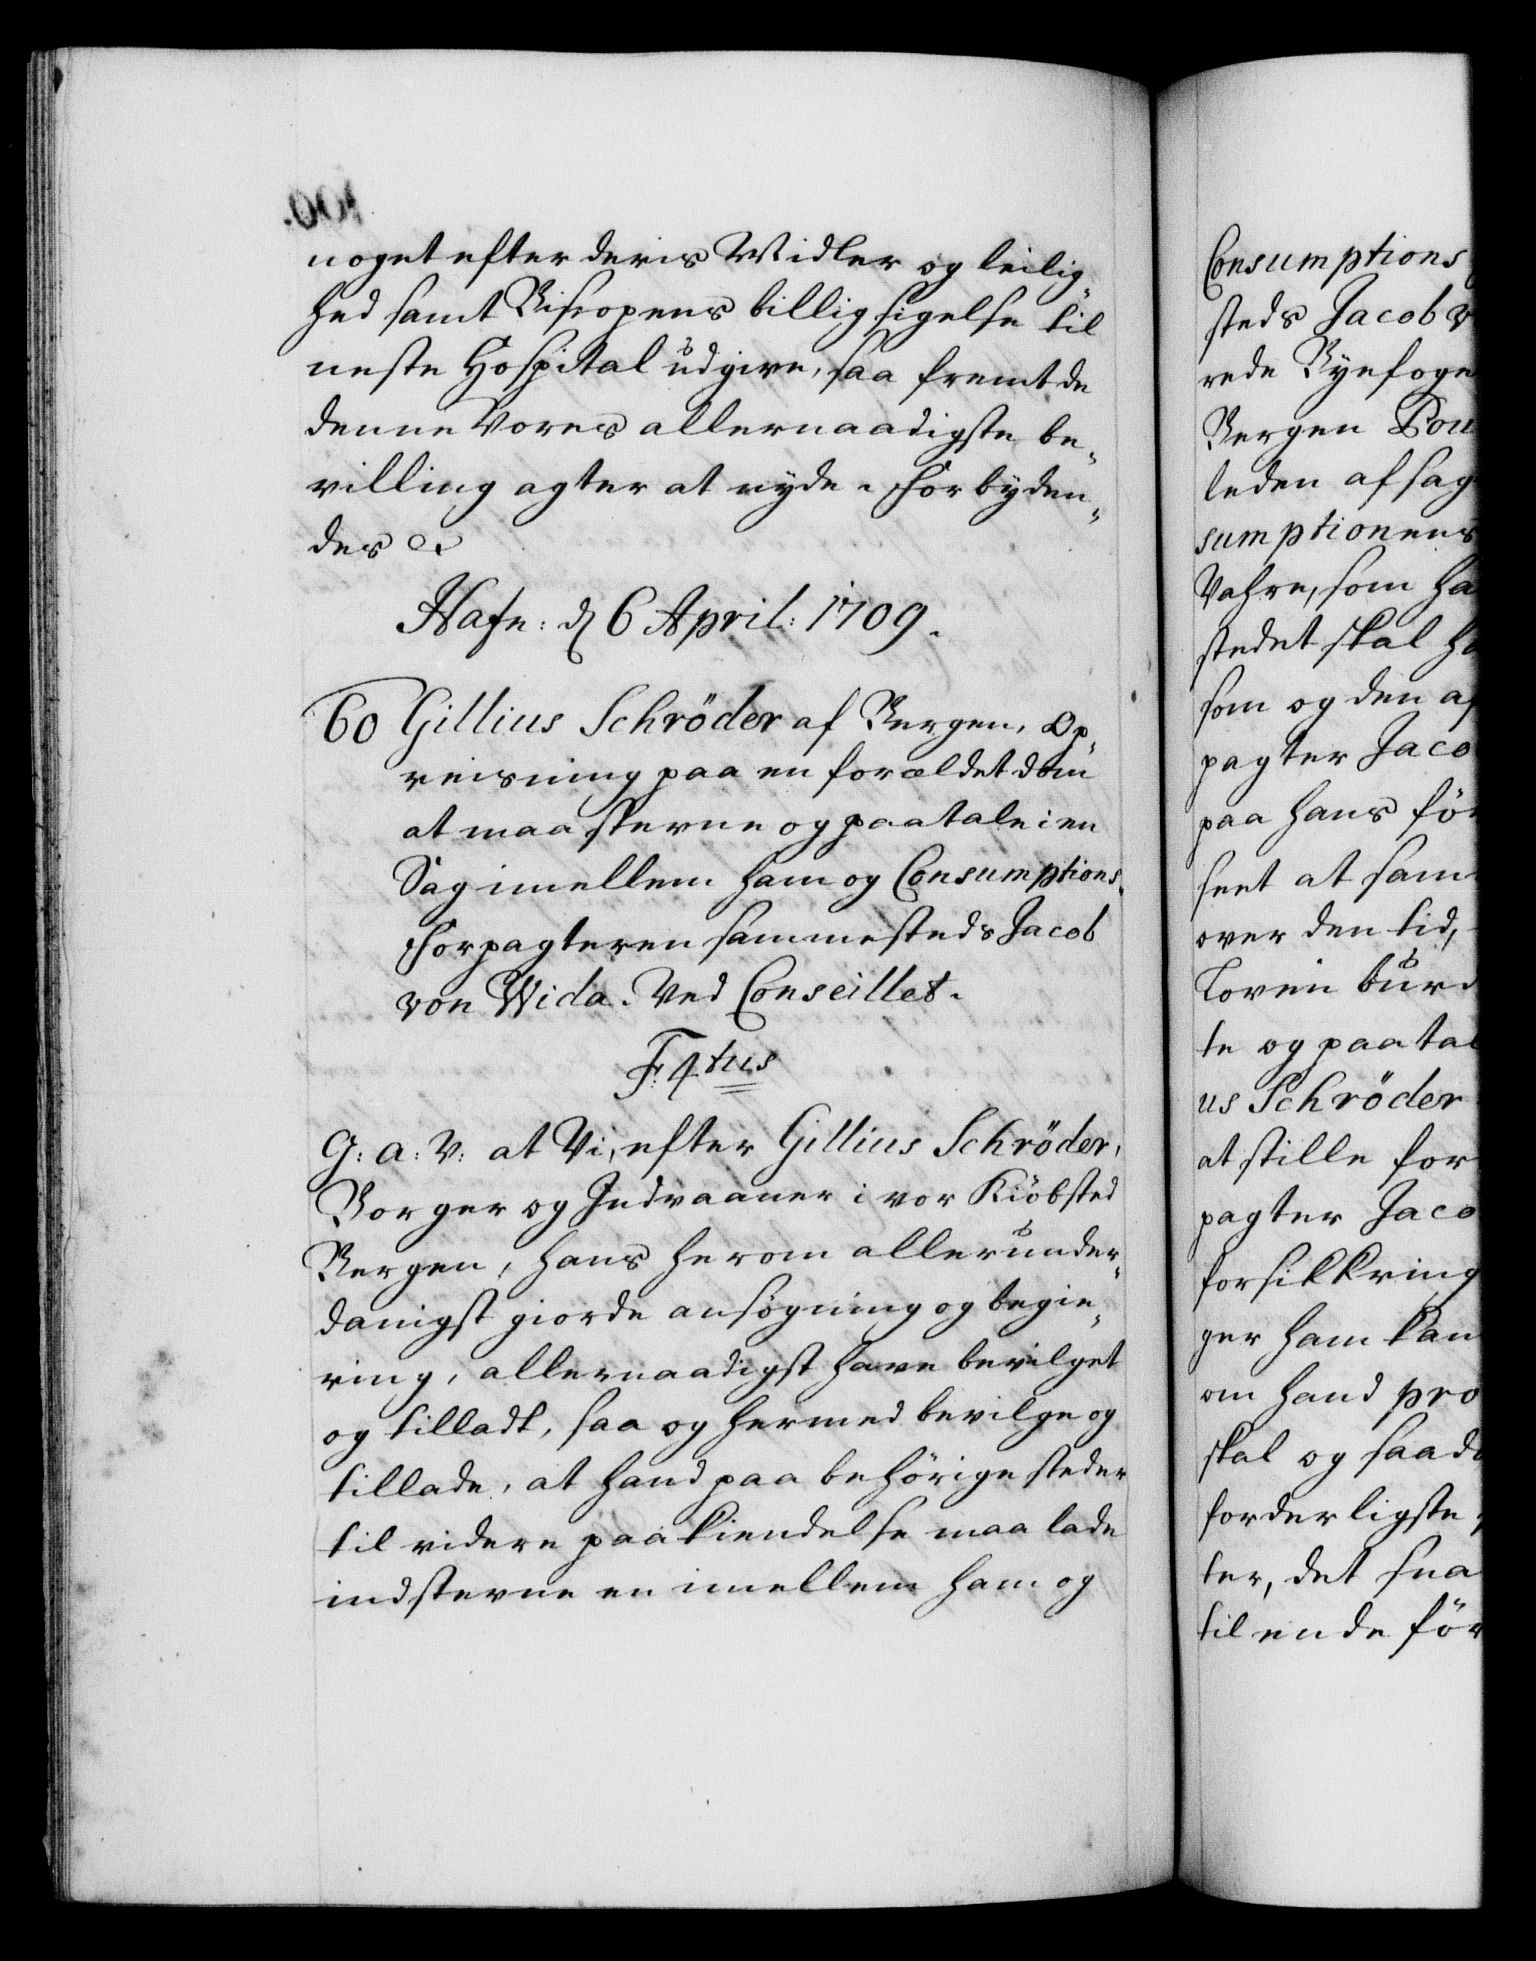 noget efter deris Midler og leilig„
hed samt Biscopens billig sigelse til
neste Hospital udgive, saa fremt de
denne Vores allernaadigste be„
villing agter at nyde. Forbyden„
des &
Hafn: d 6 April: 1709.
60 Gillius Schröder af Bergen, Op„
reisning paa en forældet dom
at maa stevne og paatale i en
Sag imellem ham og Consumptions„
Forpagteren sammesteds Jacob
von Wida. Ved Conseillet.
F: 4tus
G: A: V: at Vi, efter Gillius Schröder,
Borger og Indvaaner i vor Kiöbsted
Bergen, hans herom allerunder„
danigst giorde ansögning og begie„
ring, allernaadigst have bevilget
og tilladt, saa og hermed bevilge og
tillade, at hand paa behörige steder
til videre paakiendelse maa lade
indstevne en imellem ham og
Consumptions
steds Jacob v
rede Byefoge
Bergen Pou
leden afsag
sumptionens
Vahre, som ha
stedet skal ha
som og den af
pagter Jaco
paa hans för
seet at sam
over den tid,
Loven burd
te og paatal
us Schröder
at stille for
pagter Jaco
forsikkring
ger ham kan
om hand pro
skal og saad
forderligste
ter, det sna
til ende för